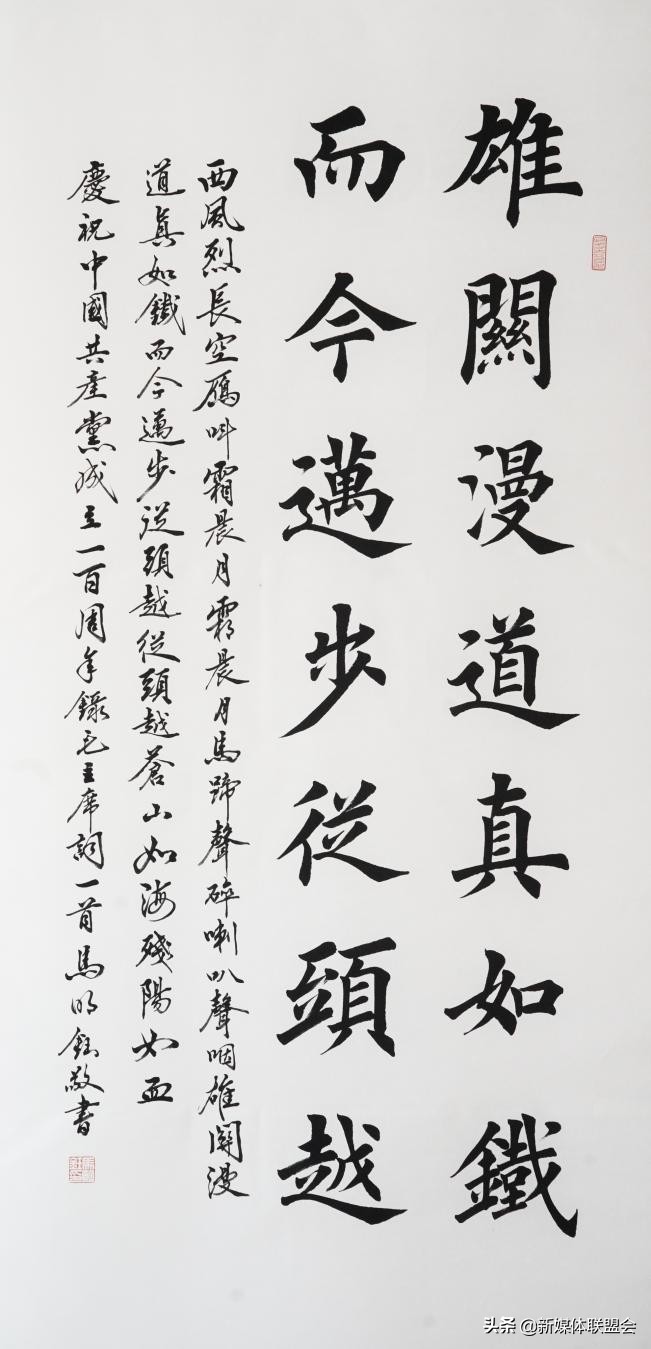 雄關漫道真如鐵
而今邁步從頭越
西風烈長空雁叫霜晨月霜晨月馬蹄聲碎喇叭聲咽雄関漫
道真如鐵而今邁步從頭越從頭越蒼山如海殘陽如血
慶祝中國共產黨成立一百周年錄毛主席詞一首馬明鈺敬書
头条 @新媒体联盟会